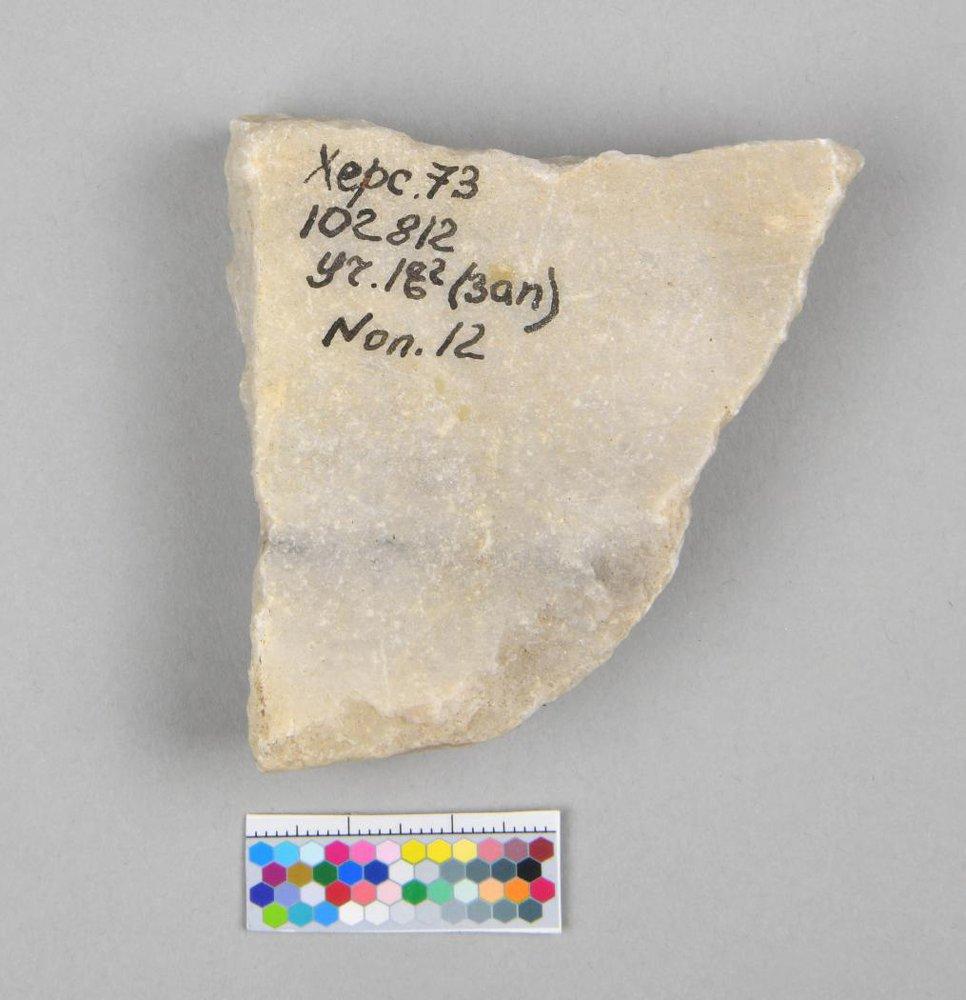 Херс.73
102812
Уч. 18² (зап)
Поп. 12